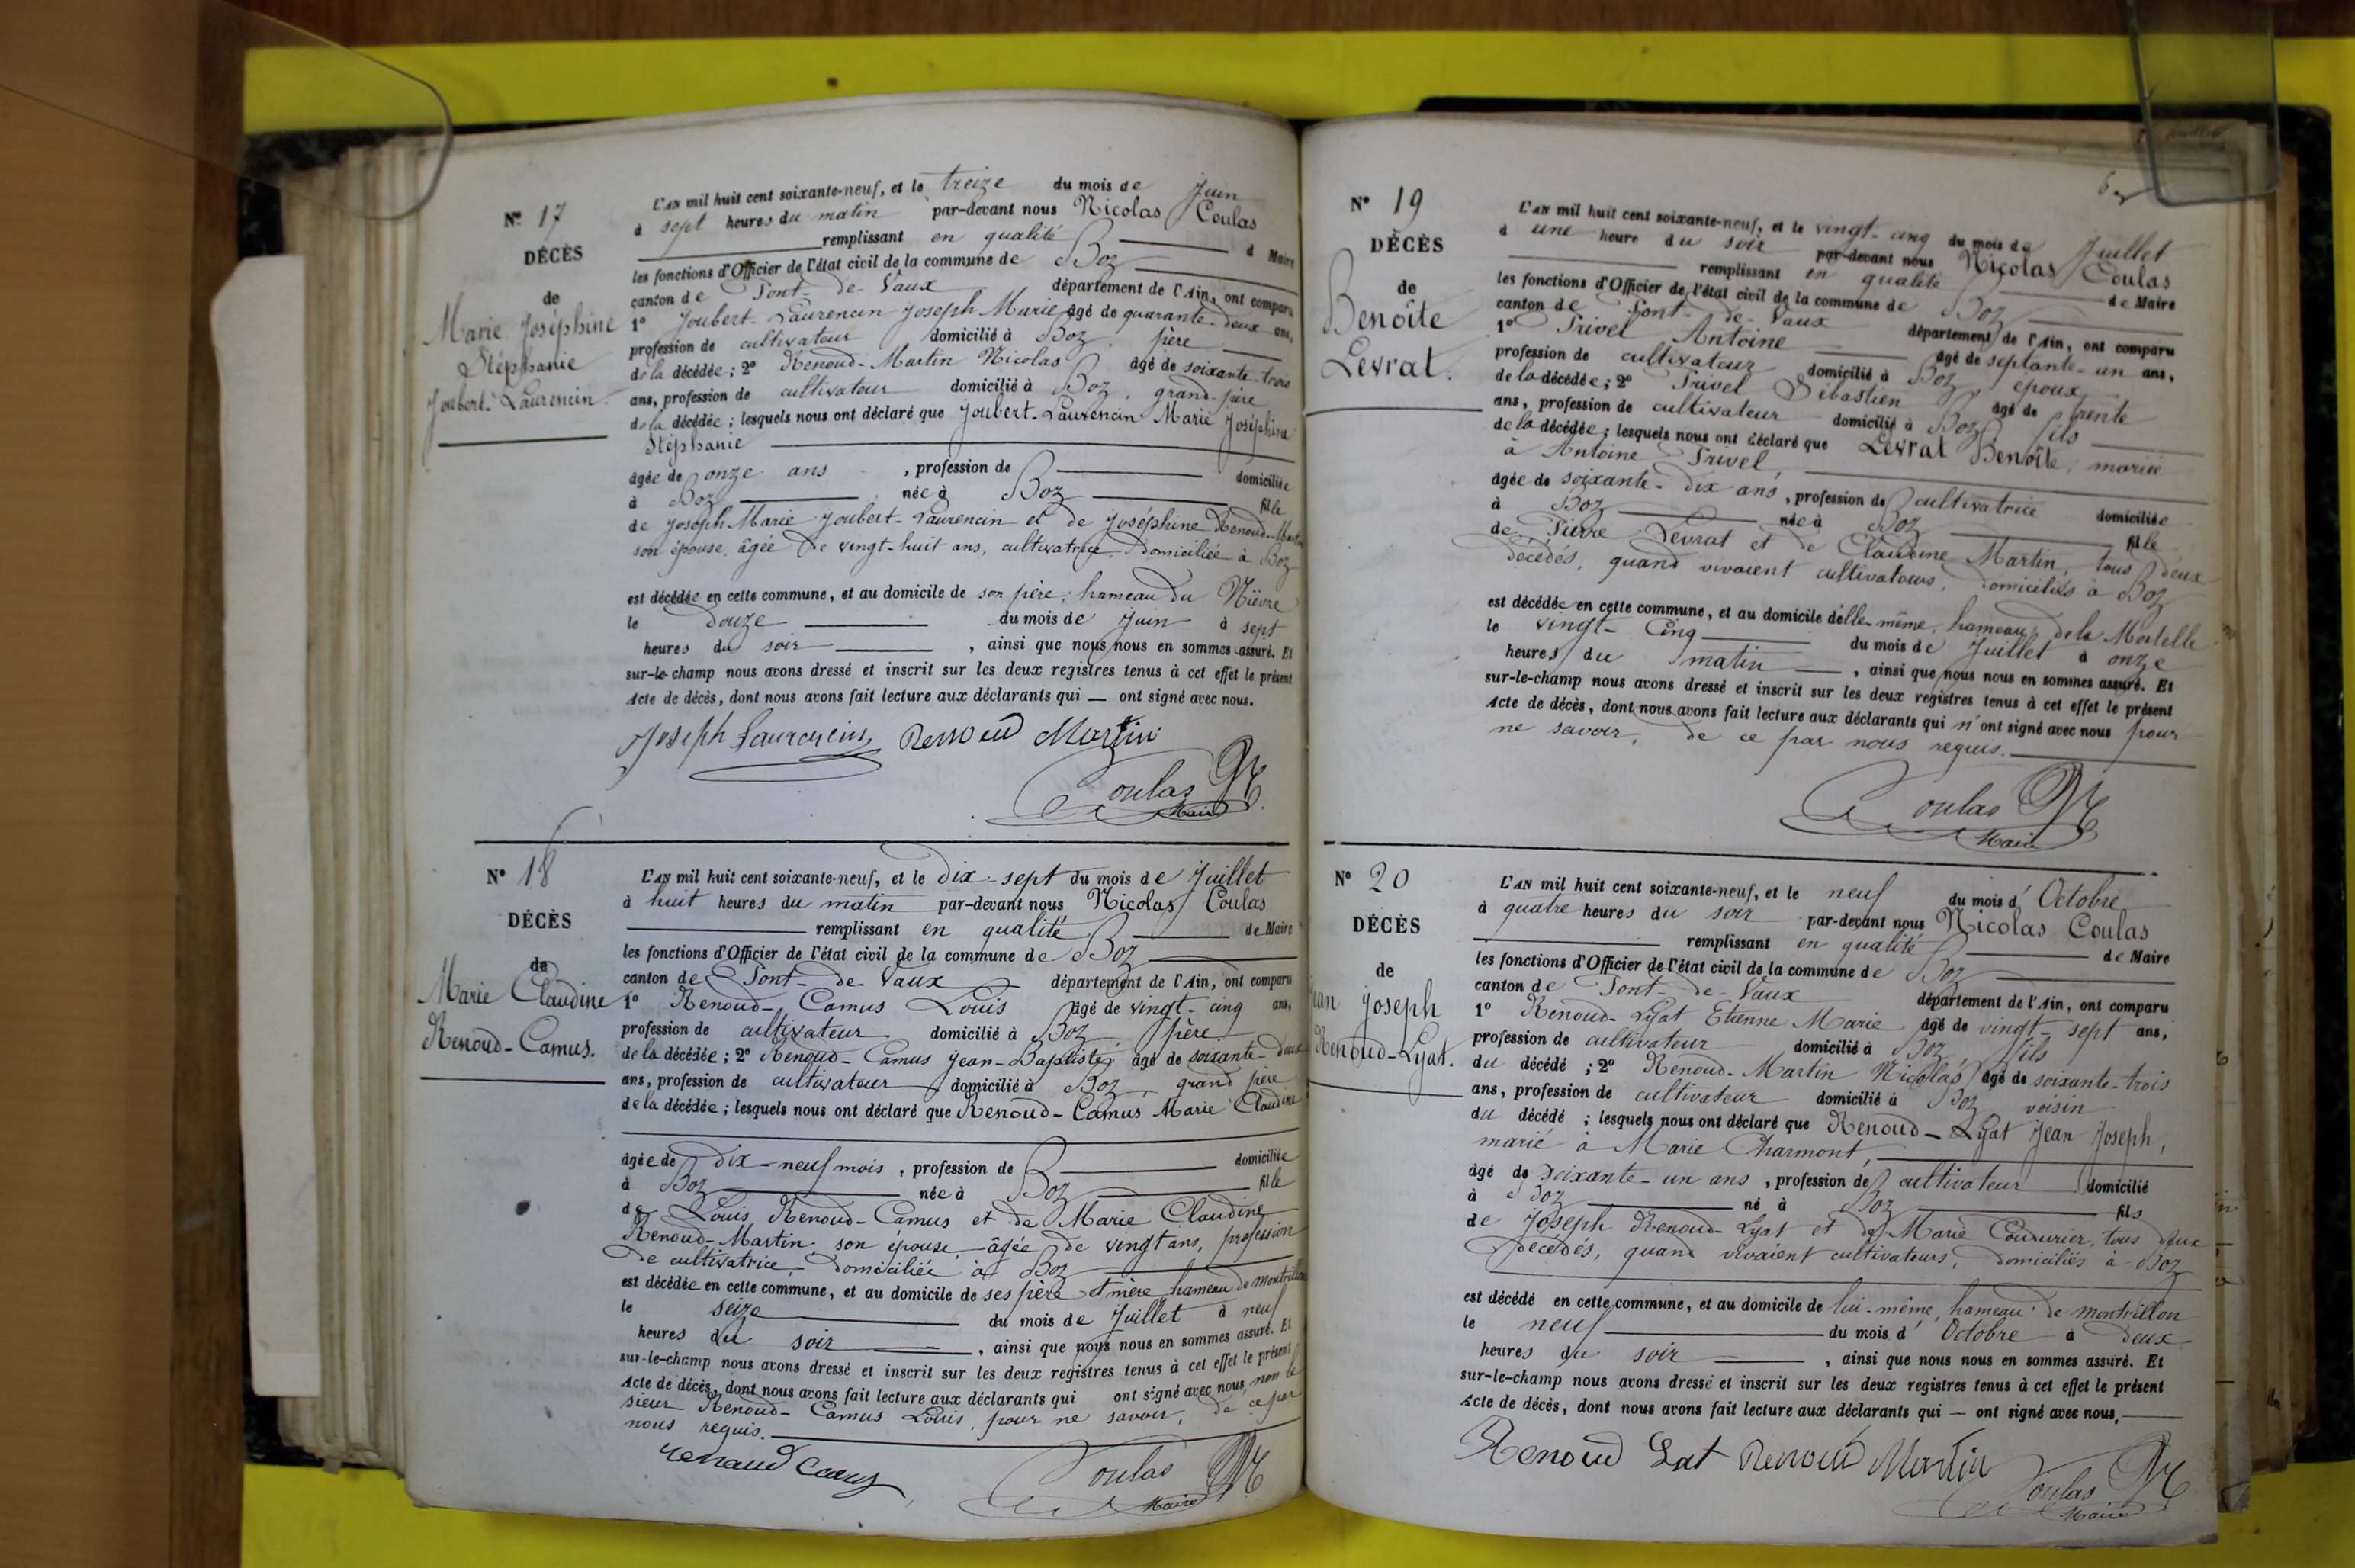 N° 17
DÉCÈS
de
Marie Joséphine
Stéphanie
Joubert-Laurencin.
L'AN mil huit cent soixante-neuf, et le treize du mois de Juin
à sept heures du matin par-devant nous Nicolas Coulas
remplissant en qualité d Maire
les fonctions d'Officier de l'état civil de la commune de Boz
canton de Pont-de-Vaux département de l'Ain, ont comparu
1° Joubert-Laurencin Joseph Marie âgé de quarante-deux ans,
profession de cultivateur domicilié à Boz, père
de la décédée ; 2° Renoud-Martin Nicolas âgé de soixante-trois
ans, profession de cultivateur domicilié à Boz, grand-père
de la décédée ; lesquels nous ont déclaré que Joubert-Laurencin Marie Joséphine
Stéphanie
âgée de onze ans , profession de domiciliée
à Boz née à Boz fille
de Joseph Marie Joubert-Laurencin et de Joséphine Renoud-Martin
son épouse, âgée de vingt-huit ans, cultivatrice, domiciliée à Boz
est décédée en cette commune, et au domicile de son père, hameau du Nièvre
le douze du mois de Juin à sept
heures du soir , ainsi que nous nous en sommes assuré. Et
sur-le-champ nous avons dressé et inscrit sur les deux registres tenus à cet effet le présent
Acte de décès, dont nous avons fait lecture aux déclarants qui — ont signé avec nous.
Joseph Laurencin Renoud Martin
Coulas N
Maire
N° 18
DÉCÈS
de
Marie Claudine
Renoud-Camus.
L'AN mil huit cent soixante-neuf, et le dix-sept du mois de Juillet
à huit heures du matin par-devant nous Nicolas Coulas
remplissant en qualité de Maire
les fonctions d'Officier de l'état civil de la commune de Boz
canton de Pont-de-Vaux département de l'Ain, ont comparu
1° Renoud-Camus Louis âgé de vingt-cinq ans,
profession de cultivateur domicilié à Boz, père
de la décédée ; 2° Renoud-Camus Jean-Baptiste, âgé de soixante-deux
ans, profession de cultivateur domicilié à Boz, grand père
de la décédée ; lesquels nous ont déclaré que Renoud-Camus Marie Claudine
âgée de dix-neuf mois , profession de domiciliée
à Boz née à Boz fille
de Louis Renoud-Camus et de Marie Claudine
Renoud-Martin, son épouse, âgée de vingt ans, profession
de cultivatrice, domiciliée à Boz
est décédée en cette commune, et au domicile de ses père et mère, hameau de montrillon
le seize du mois de Juillet à neuf
heures du soir , ainsi que nous nous en sommes assuré. Et
sur-le-champ nous avons dressé et inscrit sur les deux registres tenus à cet effet le présent
Acte de décès, dont nous avons fait lecture aux déclarants qui ont signé avec nous, non le
sieur Renoud-Camus Louis, pour ne savoir, de ce par
nous requis.
renaud Camus
Coulas N
Maire
N° 19
DÉCÈS
de
Benoîte
Levrat.
L'AN mil huit cent soixante-neuf, et le vingt-cinq du mois de Juillet
à une heure du soir par-devant nous Nicolas Coulas
remplissant en qualité de Maire
les fonctions d'Officier de l'état civil de la commune de Boz
canton de Pont-de-Vaux département de l'Ain, ont comparu
1° Privel Antoine âgé de septante-un ans,
profession de cultivateur domicilié à Boz, époux
de la décédée ; 2° Privel Sébastien âgé de trente
ans, profession de cultivateur domicilié à Boz, fils
de la décédée ; lesquels nous ont déclaré que Levrat Benoîte, mariée
à Antoine Privel,
âgée de soixante-dix ans , profession de cultivatrice domiciliée
à Boz née à Boz fille
de Pierre Levrat et de Claudine Martin, tous deux
décédés, quand vivaient cultivateurs, domiciliés à Boz
est décédée en cette commune, et au domicile d'elle-même, hameau de la Mortelle
le vingt-cinq du mois de Juillet à onze
heures du matin , ainsi que nous nous en sommes assuré. Et
sur-le-champ nous avons dressé et inscrit sur les deux registres tenus à cet effet le présent
Acte de décès, dont nous avons fait lecture aux déclarants qui n'ont signé avec nous pour
ne savoir, de ce par nous requis.
Coulas N
Maire
N° 20
DÉCÈS
de
Jean Joseph
Renoud-Lyat.
L'AN mil huit cent soixante-neuf, et le neuf du mois d'Octobre
à quatre heures du soir par-devant nous Nicolas Coulas
remplissant en qualité de Maire
les fonctions d'Officier de l'état civil de la commune de Boz
canton de Pont-de-Vaux département de l'Ain, ont comparu
1° Renoud-Lyat Etienne Marie âgé de vingt-sept ans,
profession de cultivateur domicilié à Boz, fils
du décédé ; 2° Renoud-Martin Nicolas âgé de soixante-trois
ans, profession de cultivateur domicilié à Boz voisin
du décédé ; lesquels nous ont déclaré que Renoud-Lyat Jean Joseph,
marié à Marie Charmont,
âgé de soixante-un ans , profession de cultivateur domicilié
à Boz né à Boz fils
de Joseph Renoud-Lyat et de Marie Couvrier, tous deux
décédés, quand vivaient cultivateurs, domiciliés à Boz
est décédé en cette commune, et au domicile de lui-même, hameau de montrillon
le neuf du mois d'Octobre à deux
heures du soir , ainsi que nous nous en sommes assuré. Et
sur-le-champ nous avons dressé et inscrit sur les deux registres tenus à cet effet le présent
Acte de décès, dont nous avons fait lecture aux déclarants qui — ont signé avec nous.
Renoud Lat Renoud Martin
Coulas N
Maire